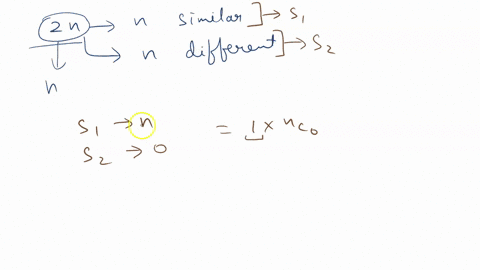 2n → n similar ] → S1
→ n different ] → S2
n
S1 → n = 1 × nC0
S2 → 0